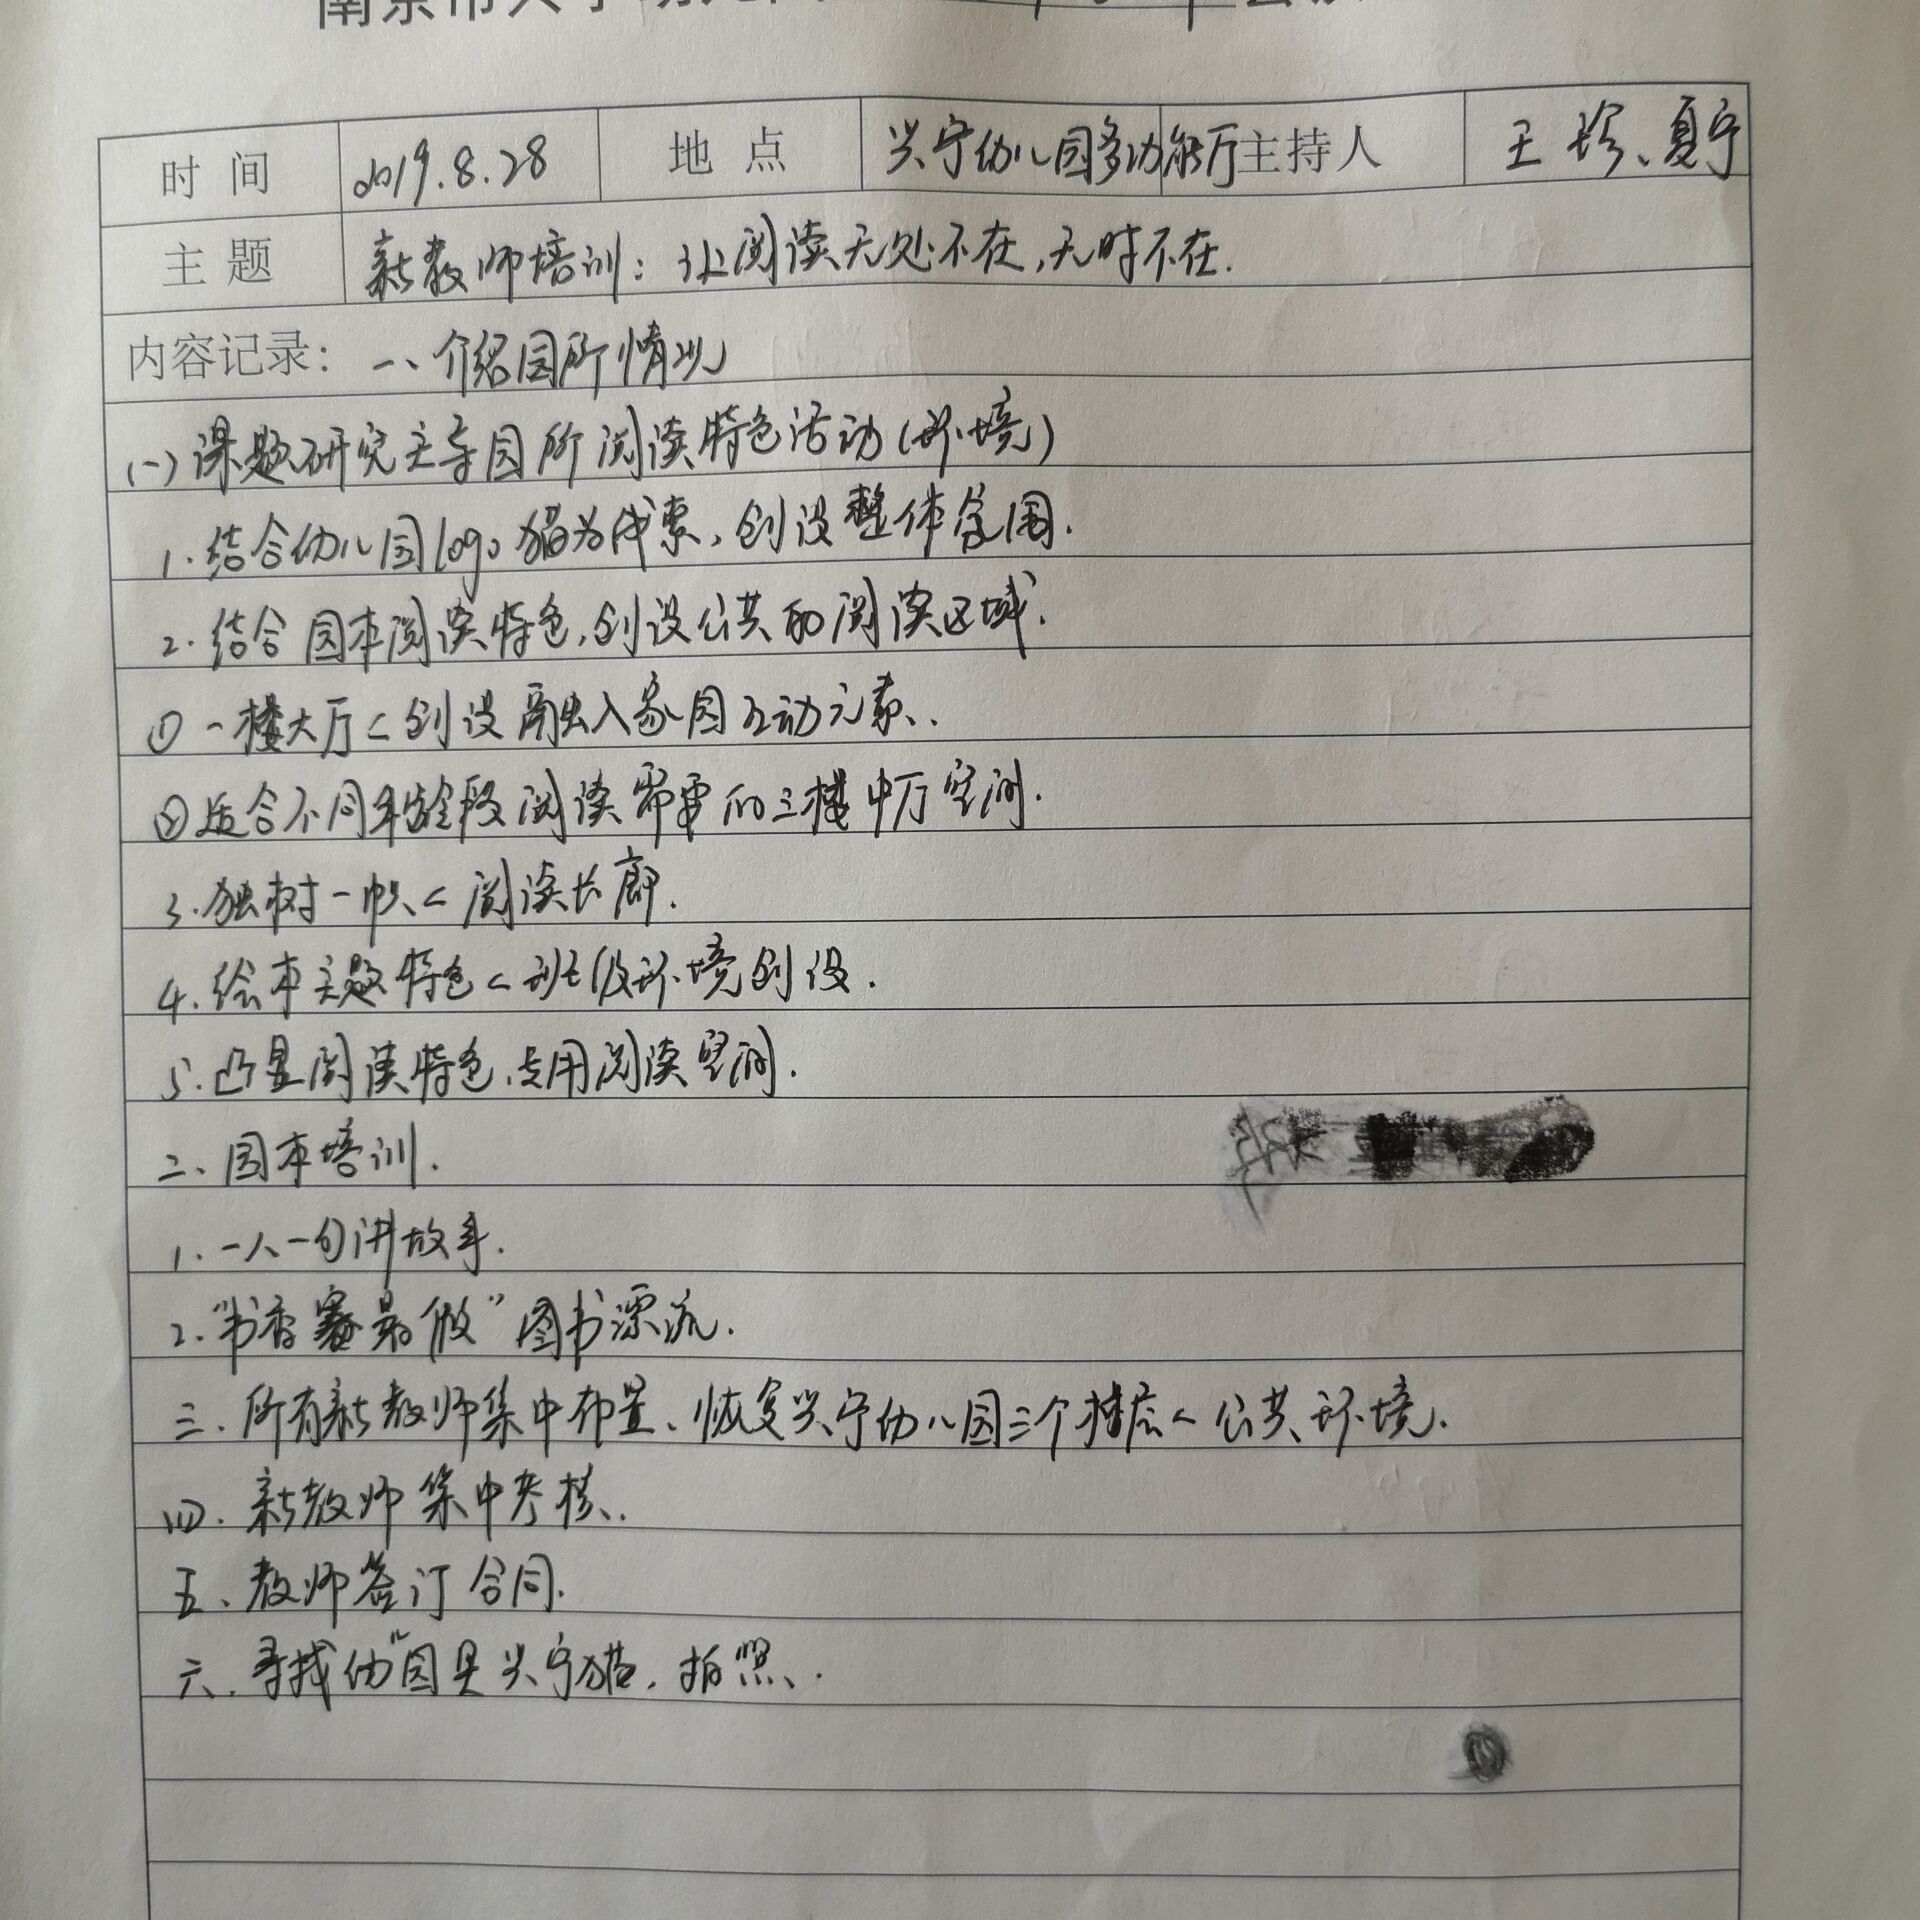 时间 2019.8.28 地点 兴宁幼儿园多功能厅 主持人 王珍、夏宁
主题 新教师培训：让阅读无处不在，无时不在.
内容记录：一、介绍园所情况
(一)课题研究主导园所阅读特色活动(环境)
1.结合幼儿园logo猫为线索，创设整体氛围.
2.结合园本阅读特色，创设公共的阅读区域.
①一楼大厅<创设融入家园互动元素..
②适合不同年龄段阅读需要的三楼中厅空间.
3.独树一帜<阅读长廊.
4.绘本主题特色<班级环境创设.
5.凸显阅读特色，专用阅读空间.
二、园本培训.
1.一人一句讲故事.
2."书香 最 "图书漂流.
三.所有新教师集中布置、恢复兴宁幼儿园三个楼层<公共环境.
四.新教师集中考核.
五、教师签订合同.
六.寻找幼"园 兴宁猫，拍照、.